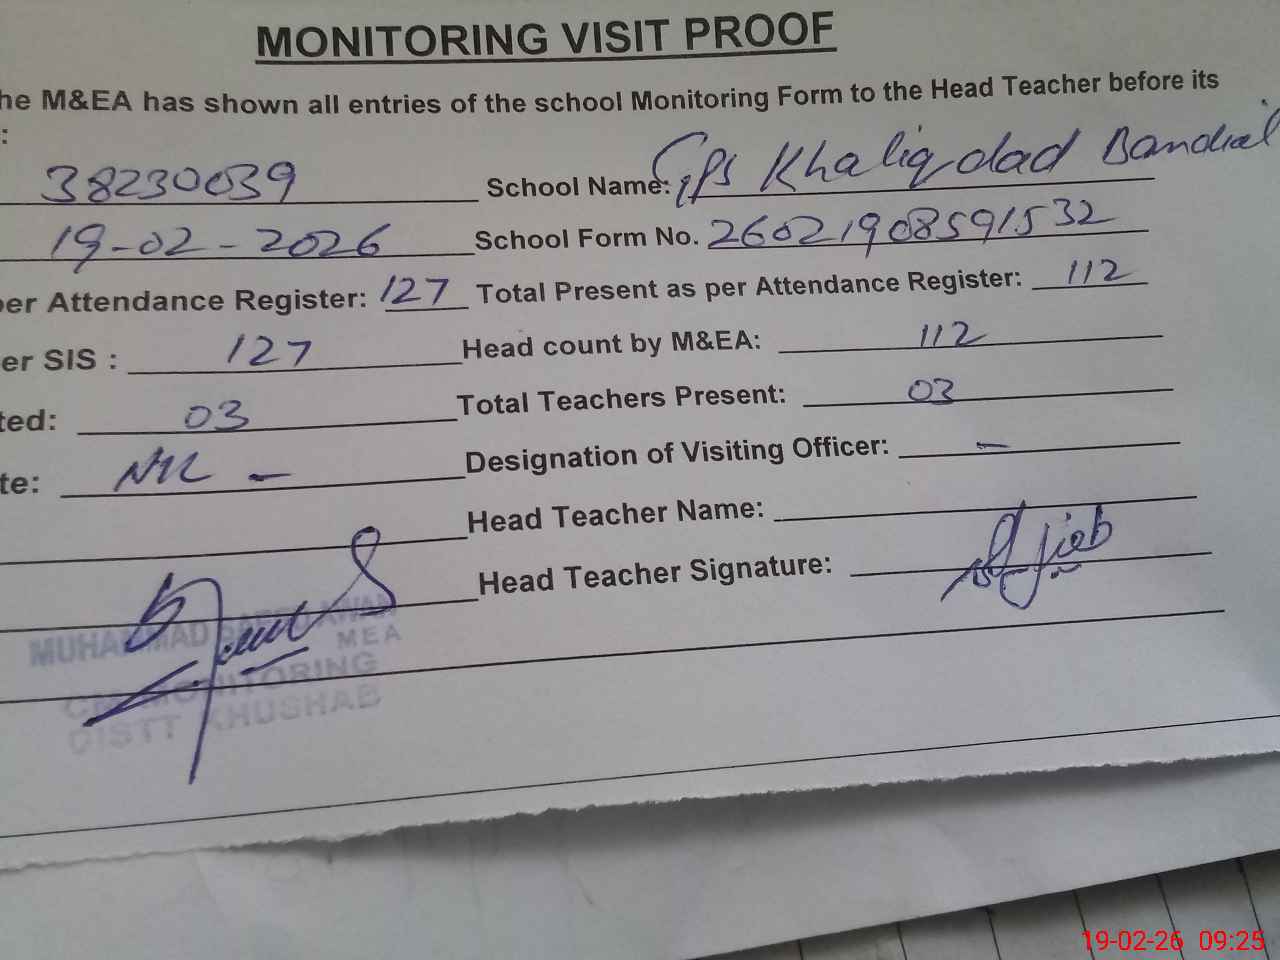 MONITORING VISIT PROOF
he M&EA has shown all entries of the school Monitoring Form to the Head Teacher before its
:
38230039 School Name: GPS Khaliqdad Bandial
19-02-2026 School Form No. 260219085915 32
er Attendance Register: 127 Total Present as per Attendance Register: 112
er SIS : 127 Head count by M&EA: 112
ted: 03 Total Teachers Present: 03
te: NIL - Designation of Visiting Officer: -
Head Teacher Name:
Head Teacher Signature:
MUHAMMAD AWAN
MEA
CM MONITORING
DISTT KHUSHAB
19-02-26 09:25